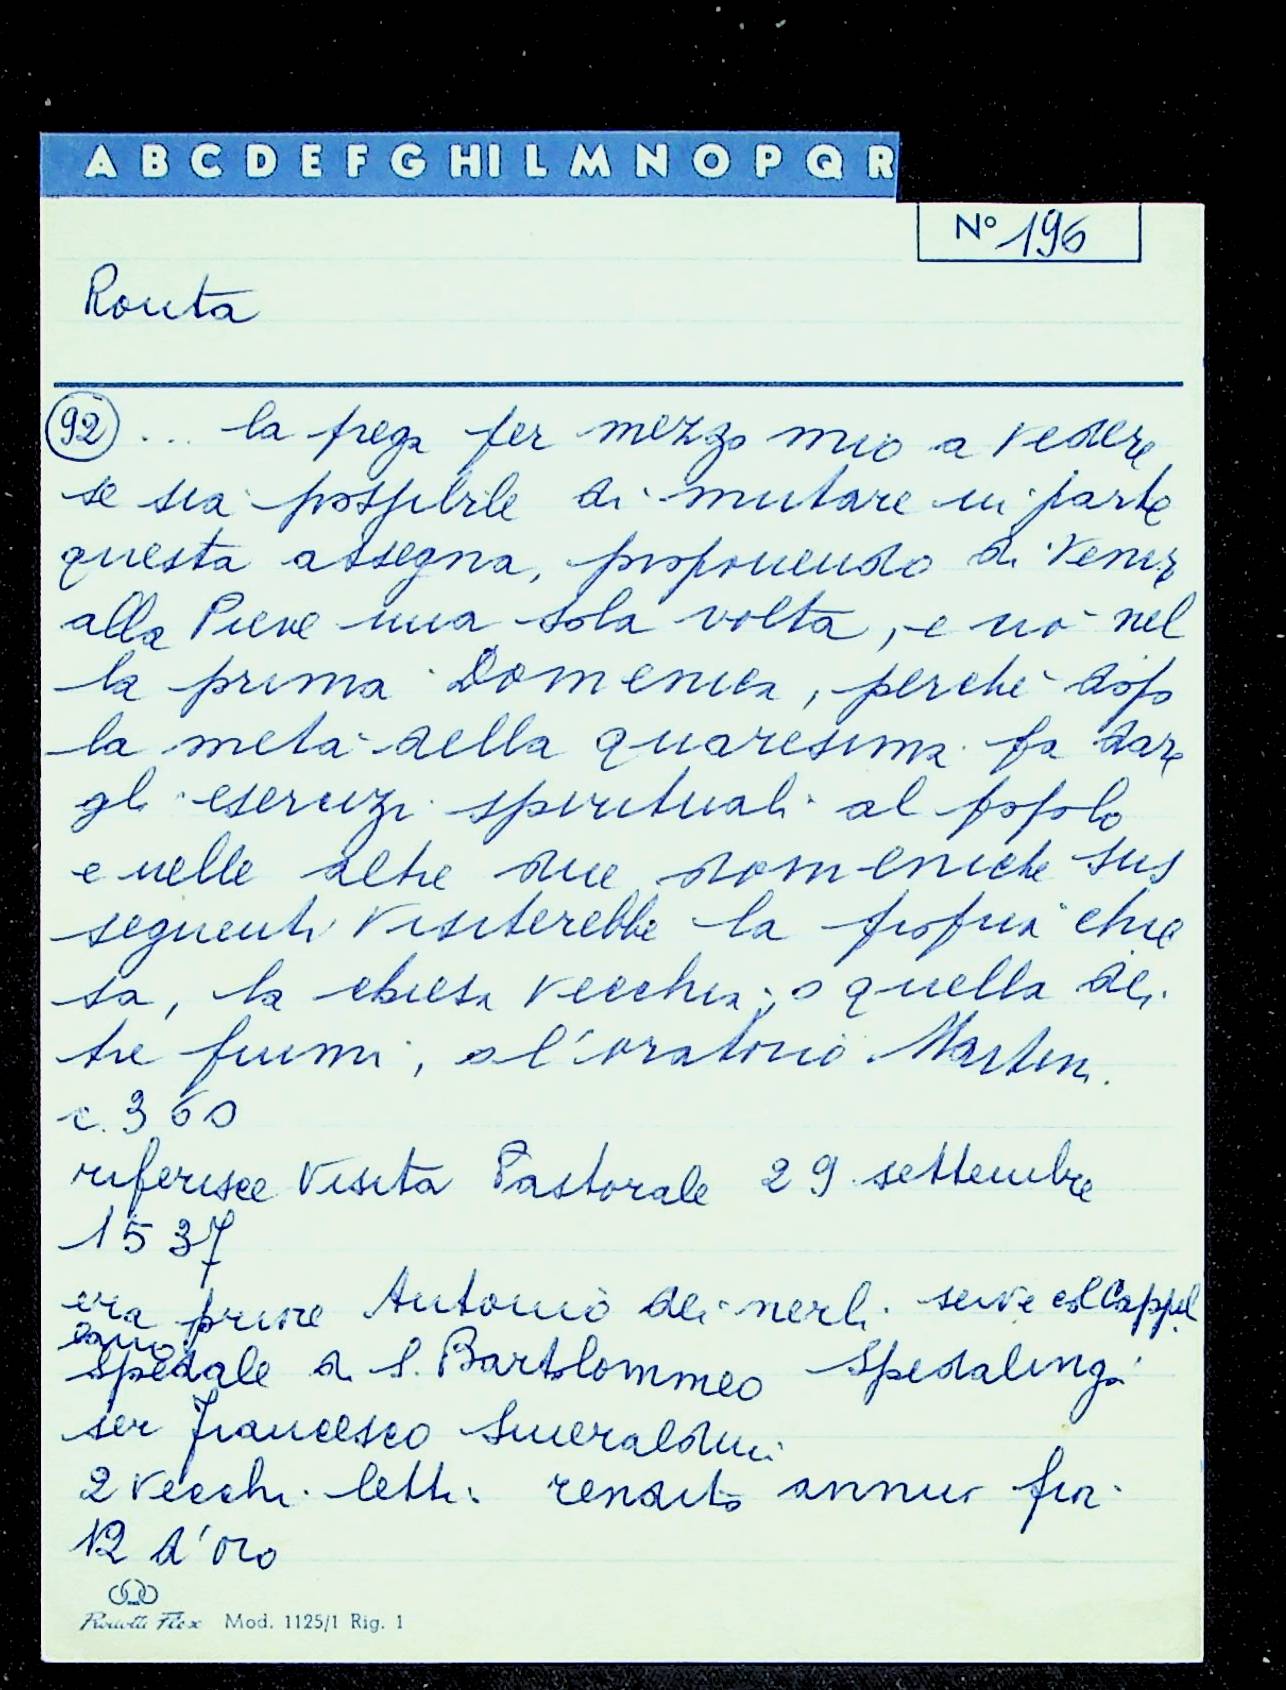 A B C D E F G HI L M N O P Q R
N° 196
Ronta
92 ... la prega per mezzo mio a vedere
se sia possibile di mutare in parte
questa assegna, proponendo di venir
alla Pieve una sola volta, e nò nel
la prima Domenica, perché dopo
la metà della quaresima fa dare
gli esercizi spirituali al popolo
e nelle altre due domeniche sus
seguenti visiterebbe la propria chie
sa, la chiesa vecchia, o quella dei
tre fiumi, o l'oratorio Martini.
c. 360
riferisce Visita Pastorale 29 settembre
1537
era priore Antonio dei nerli. serve col Cappel
lano
Spedale di S. Bartolommeo Spedalingo
ser Francesco Smeraldini
2 vecchi letti rendito annuo fior.
12 d'oro
Mod. 1125/1 Rig. 1